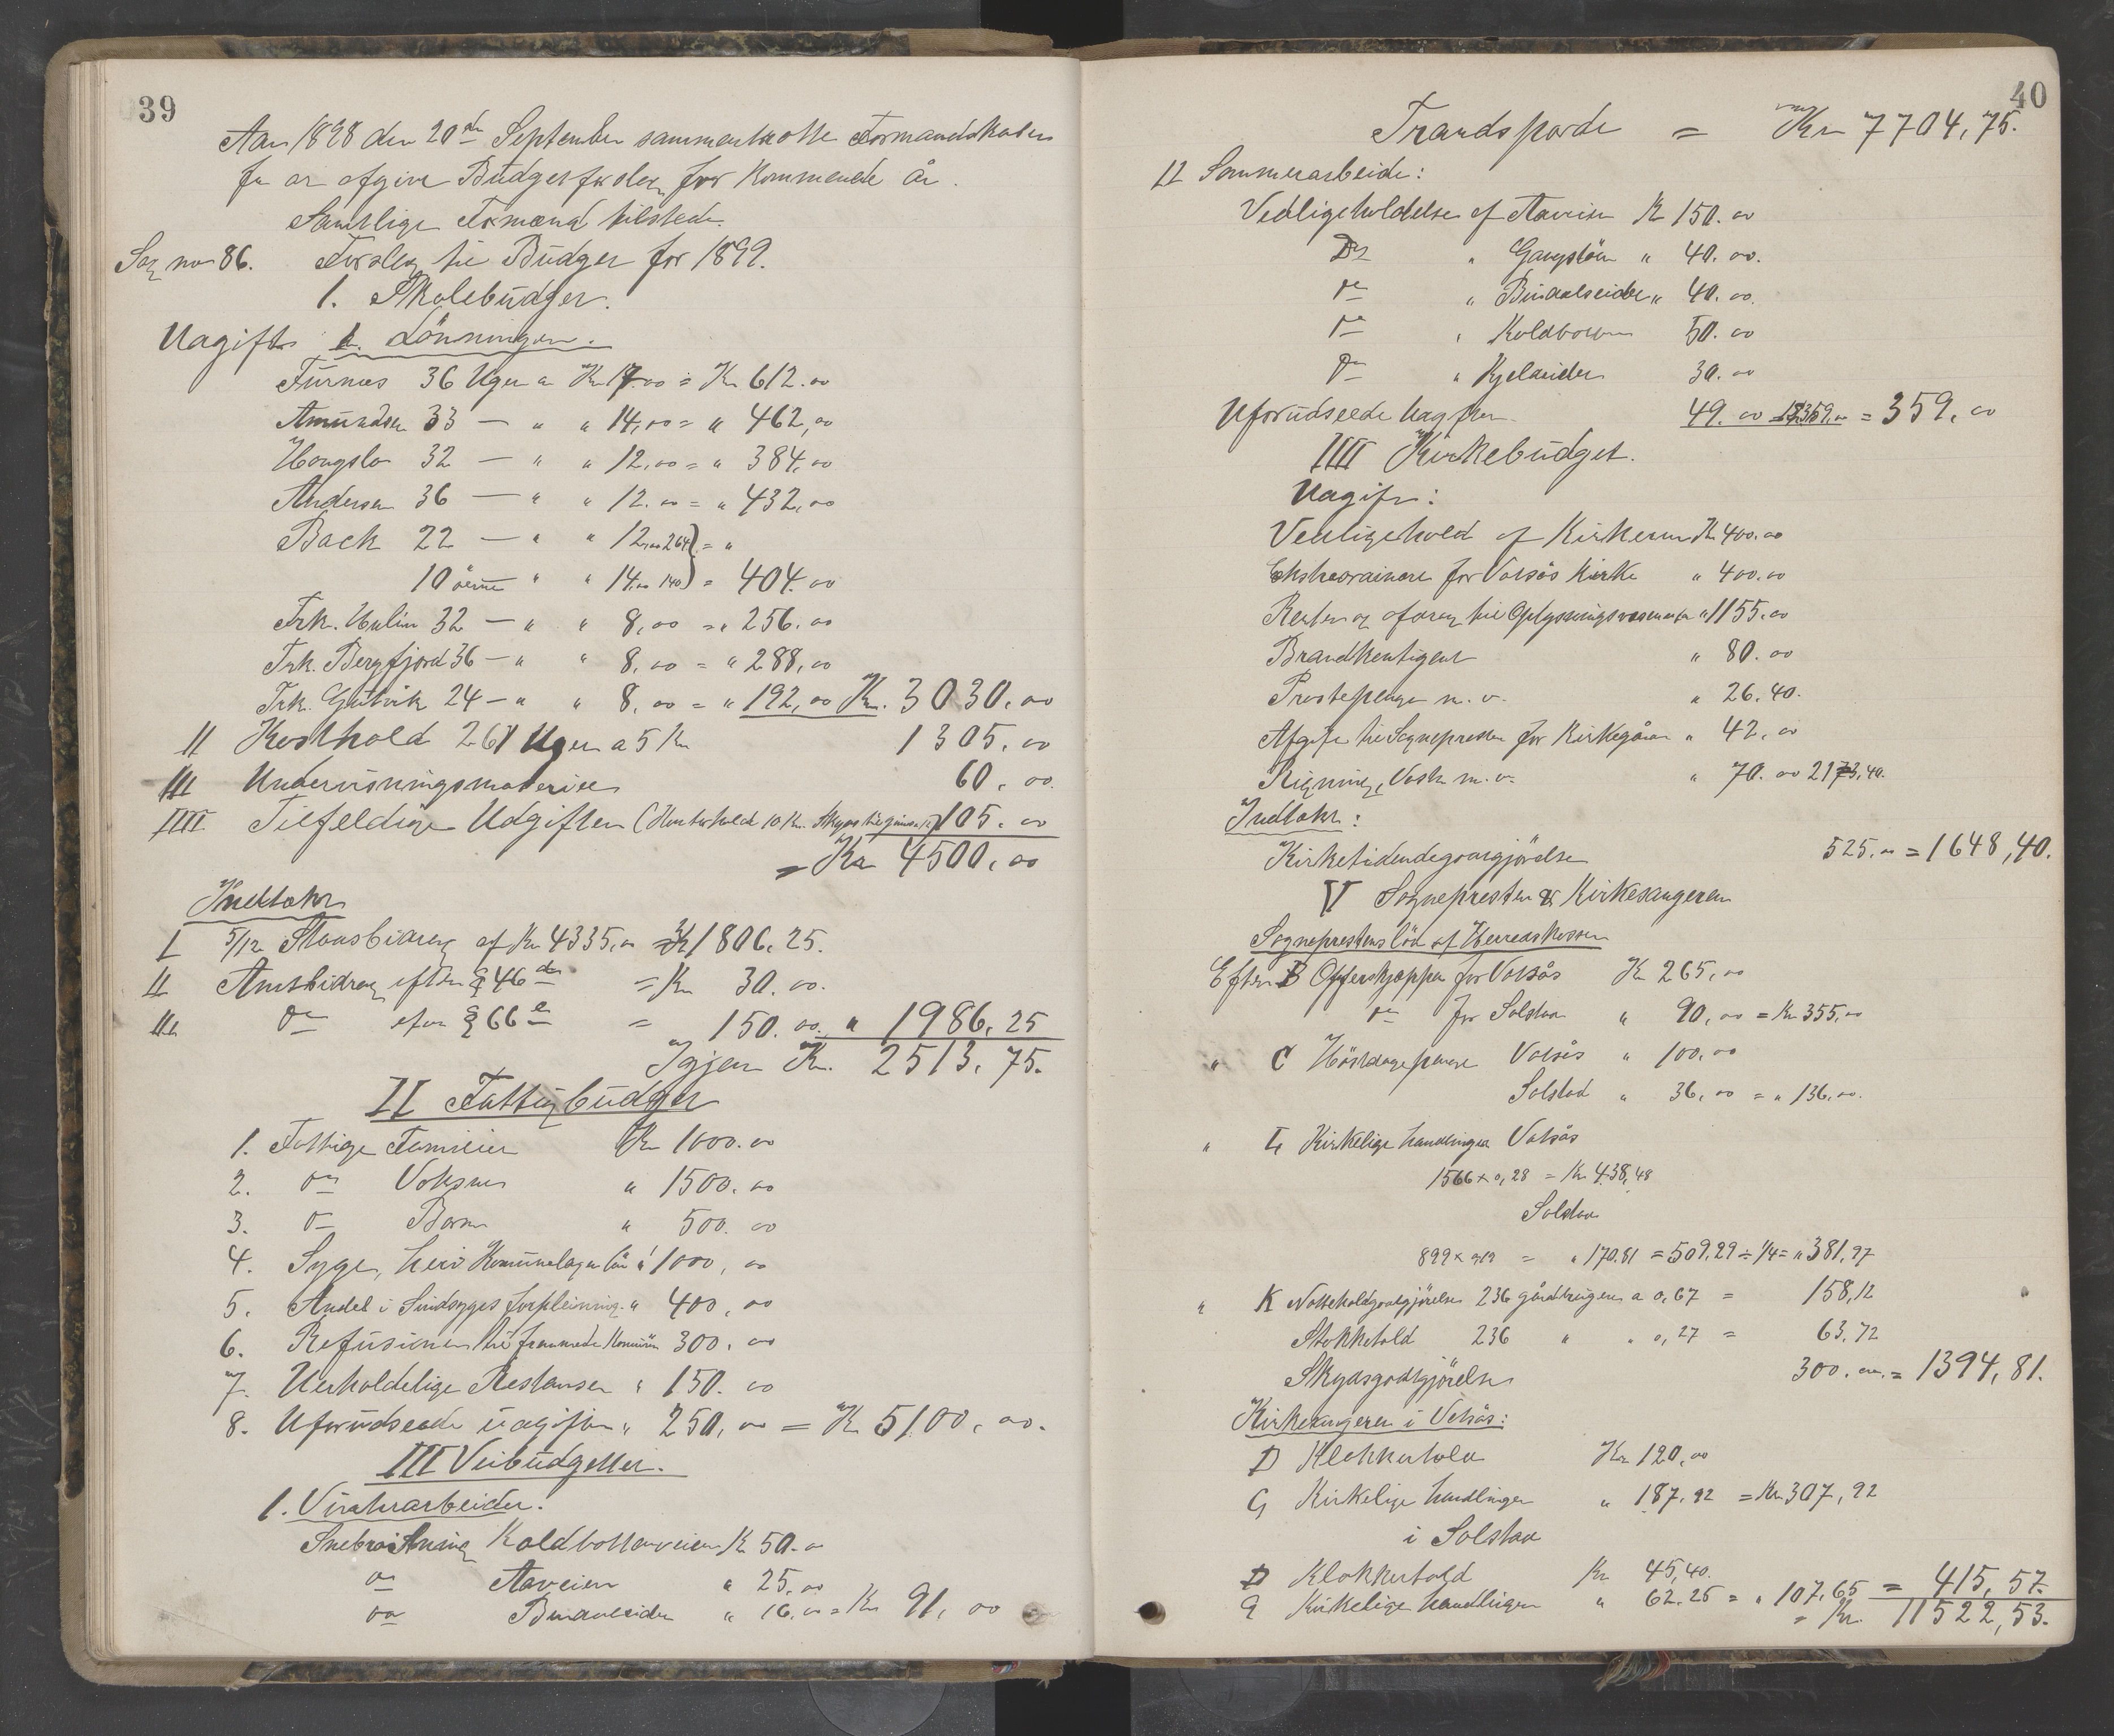 39
Aar 1898 den 20de September sammentraatte Formandskabet
for at afgive Budgetforslag for kommende År.
Samtlige Formænd tilstede.
Sag no 86. Forslag til Budget for 1899.
1. Skolebudget.
Udgifter 1. Lönninger.
Furnes 36 Uger a Kr 17.00 = Kr 612.00
Amundsen 33 — " " 14,00 = " 462,00
Haugslo 32 — " " 12.00 = " 384.00
Andersen 36 — " " 12.00 = " 432,00
Bach 22 — " " 12,00 264) = "
10 " " 14.00 140) = 404.00
Frk. Hulin 32 — " " 8,00 = " 256.00
Frk. Bergfjord 36 — " " 8,00 = " 288,00
Frk. Gutvik 24 — " " 8,00 = " 192,00 Kr. 3030,00
II Kosthold 261 Uger a 5 Kr 1305.00
III Undervisningsmateriel 60.00.
IIII Tilfeldige Udgifter 105.00
= Kr 4500,00
Indtækt
I 5/12 Statsbidrag af Kr 4335,00 = Kr 1806,25.
II Amtsbidrag efter § 46de = Kr 30.00.
III do efter § 66e = 150.00. " 1986,25
Igjen Kr. 2513,75.
II Fattigbudget
1. Fattige Familier Kr 1000.00
2. do Voksne " 1500.00
3. do Børn " 500.00
4. Syge, heri Komunelægens lön " 1000,00
5. Andel i Sindsyges forpleining " 400,00
6. Refusioner til fremmede Komuner 300.00
7. Uerholdelige Restanser " 150.00
8. Uforudseede udgifter " 250,00 = Kr 5100,00.
III Veibudgettet.
1. Vinterarbeide:
Snebrøitning Koldbottenveien Kr 50.00
do Aaveien " 25.00
do Bindalseidet " 16.00 = Kr 91,00
40
Trandsporde = Kr 7704,75.
II Sommerarbeide:
Vedligeholdelse af Aaveien Kr 150.00
Do " Gangstöen " 40.00.
do " Bindalseidet " 40.00.
do " Koldbotten 50.00
do " Kjelleidet 30.00
Uforudseede Udgifter 49.00 = 359,00
IIII Kirkebudget.
Udgift:
Vedligehold af Kirkerne Kr 400.00
Ekstraordinære for Vassås Kirke " 400.00
Renter og afdrag til Oplysningsvæsenet " 1155.00
Brandkontigent " 80.00
Prostepenge m. v. " 26,40.
Afgift til Sognepresten for Kirkegården " 42,00
Rigning, Vask m. v. " 70.00 2173,40.
Indtækt:
Kirketidendegodtgjörelse 525.00 = 1648,40.
V Sognepresten & Kirkesangeren
Sogneprestens lön af Herredskassen
Efter B Offerskjæppe for Vassås Kr 265,00
do for Solstad " 90,00 = Kr 355,00
" C Höstdagspenge Vassås " 100,00
Solstad " 36,00 = " 136,00.
" Kirkelige handlinger Vassås
1566 × 0,28 = Kr 438,48
Solstad
899 × 0,19 = " 170.81 = 509,29 ÷ 1/4 = " 381,97
" K Notteholdgodtgjörelse 236 gårdbrugere a 0,67 = 158,12
Stokketold 236 " " 0,27 = 63,72
Skydsgodtgjörelse 300.00. = 1394,81.
Kirkesangeren i Vassås:
D Klokkertold Kr 120,00
G Kirkelige handlinger " 187,92 = Kr 307,92
i Solstad
D Klokkertold Kr 45,40.
G Kirkelige handlinger " 62.25 = " 107,65 = 415,57.
= Kr. 11522,53.